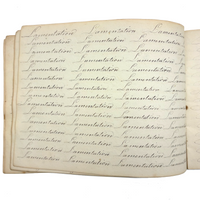 Lamentation Lamentation Lamentation
Lamentation Lamentation Lamentation
Lamentation Lamentation Lamentation
Lamentation Lamentation Lamentation
Lamentation Lamentation Lamentation
Lamentation Lamentation Lamentation
Lamentation Lamentation Lamentation
Lamentation Lamentation Lamentation
Lamentation Lamentation Lamentation
Lamentation Lamentation Lamentation
Lamentation Lamentation Lamentation
Lamentation Lamentation Lamentation
Lamentation Lamentation Lamentation
Lamentation Lamentation Lamentation